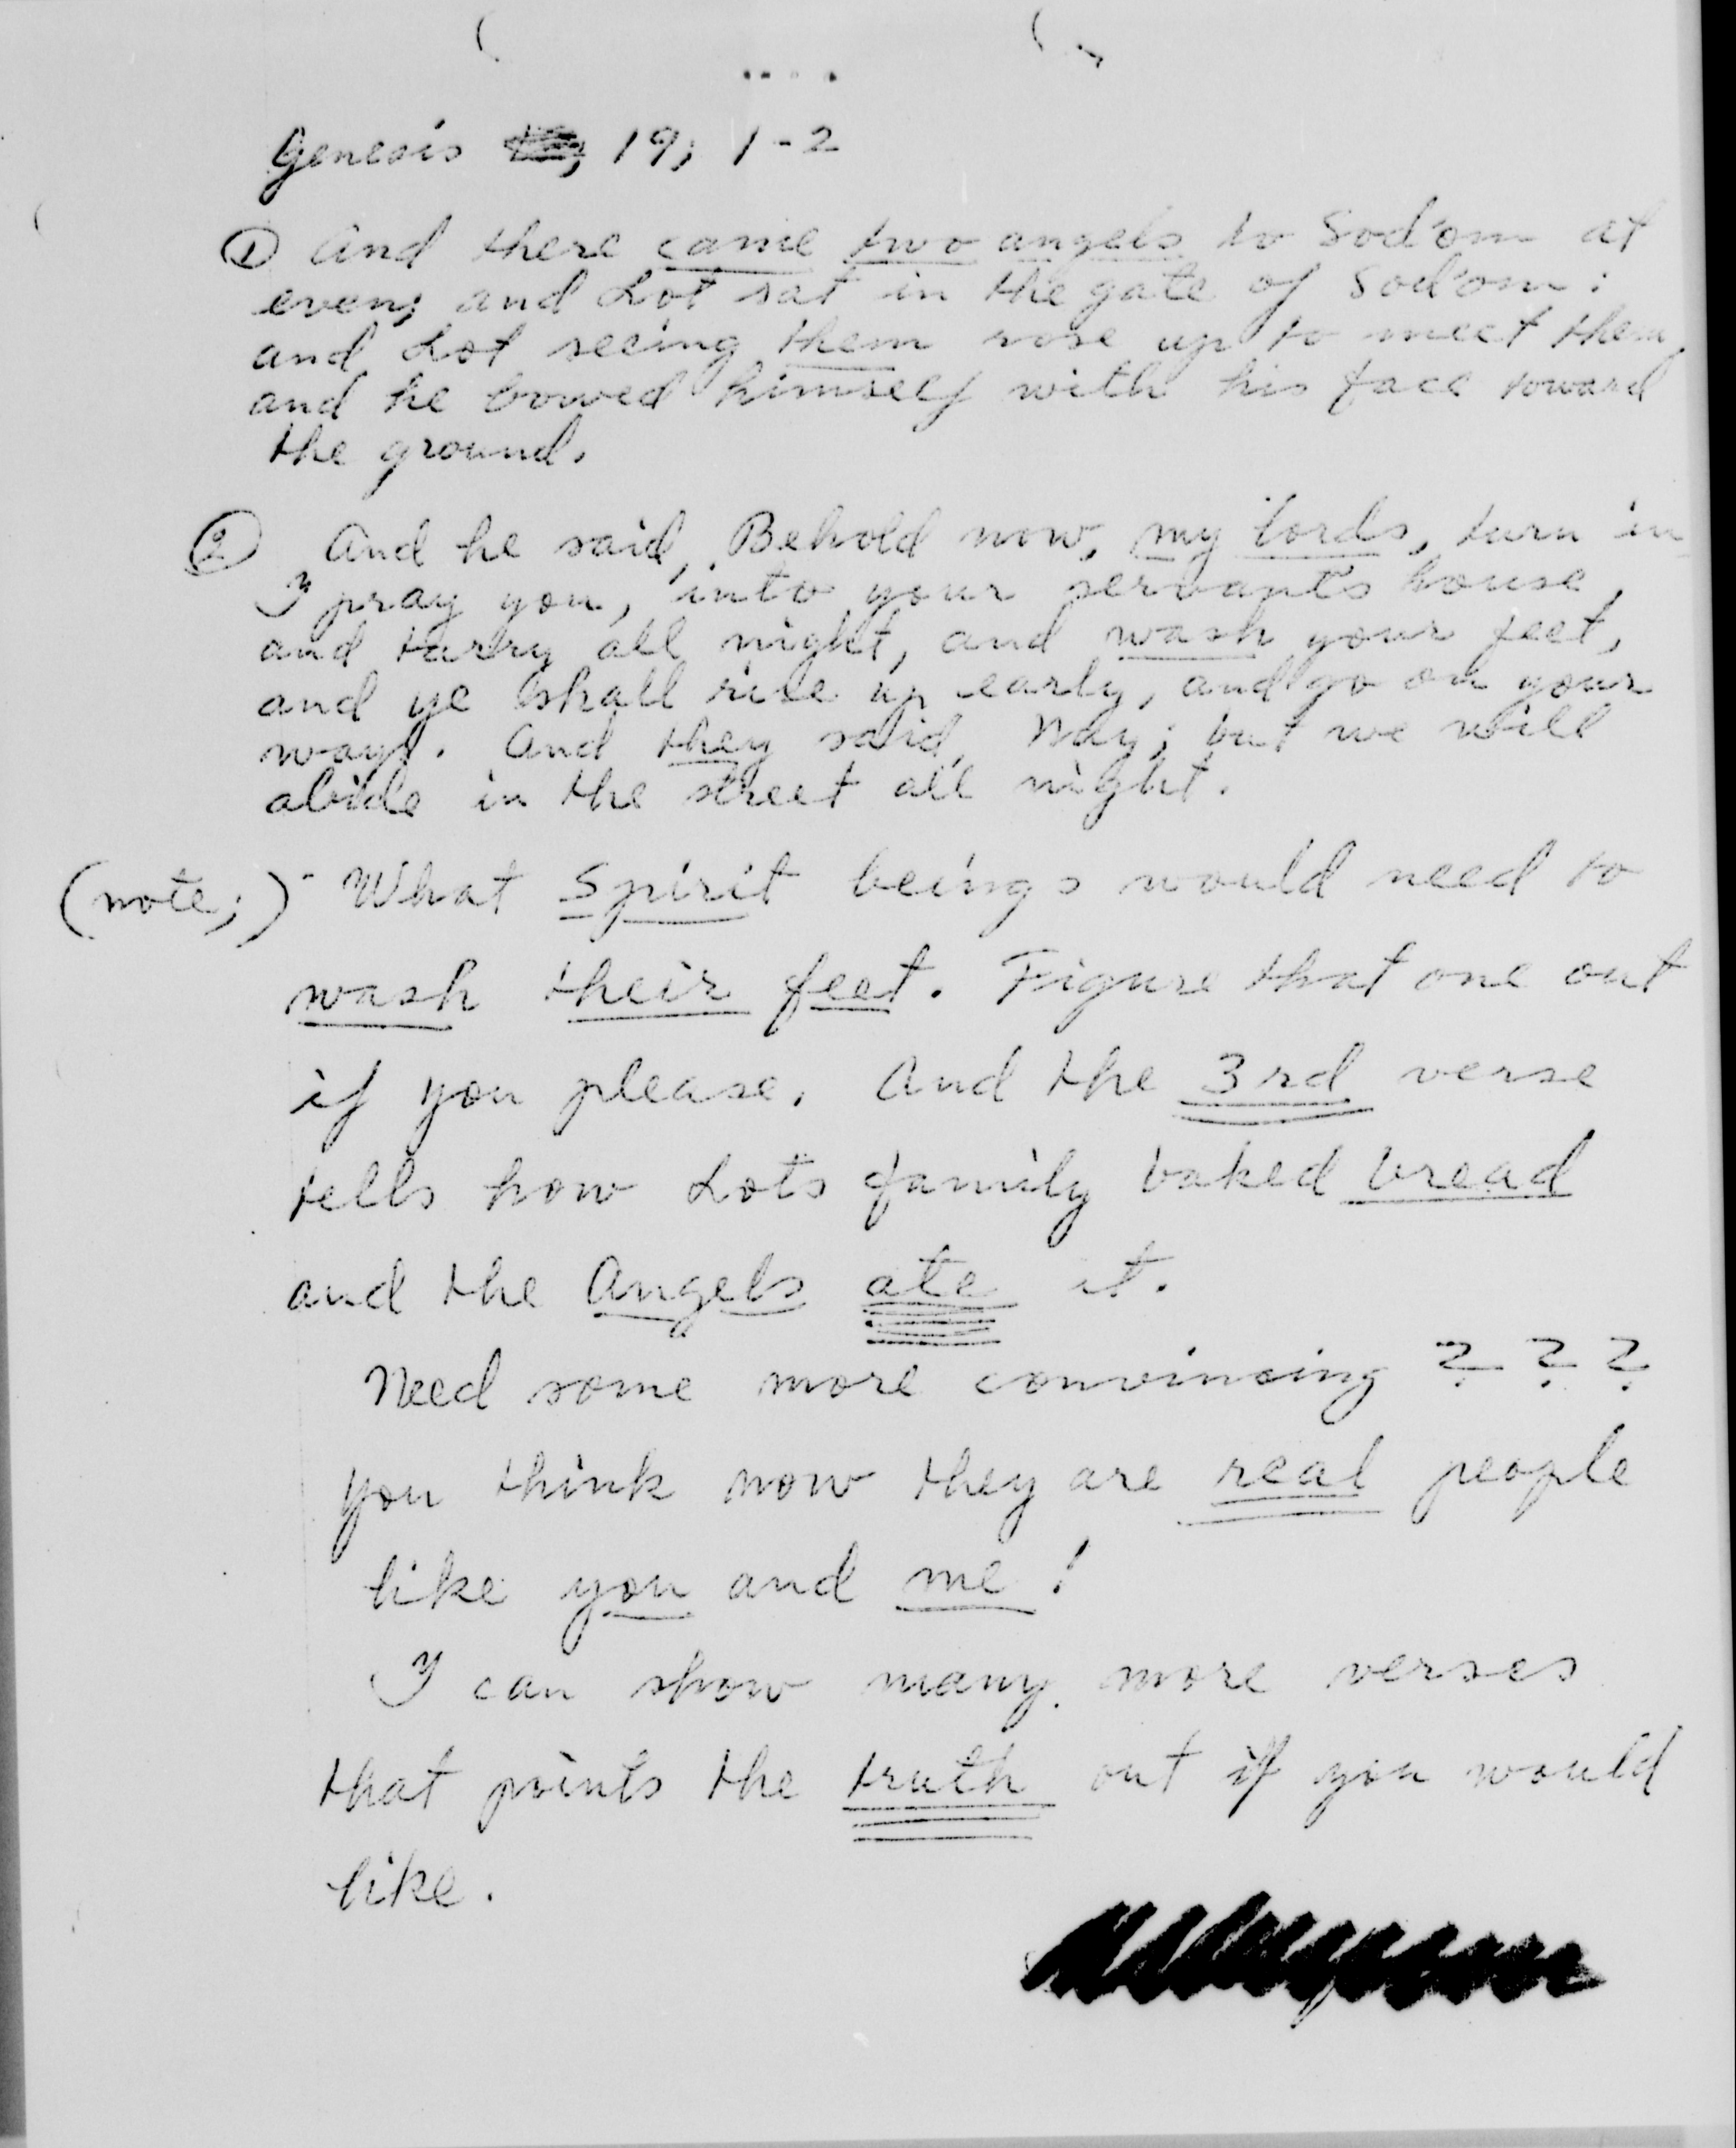 Genesis 19; 1-2
① And there came two angels to Sod'om at
even; and Lot sat in the gate of Sod'om:
and Lot seeing them rose up to meet them
and he bowed himself with his face toward
the ground.
② And he said, Behold now, my lords, turn in
I pray you, into your servant's house,
and tarry all night, and wash your feet,
and ye shall rise up early, and go on your
ways. And they said, Nay; but we will
abide in the street all night.
(note;) What Spirit beings would need to
wash their feet. Figure that one out
if you please. And the 3rd verse
tells how Lots family baked bread
and the Angels ate it.
Need some more convincing ???
You think now they are real people
like you and me!
I can show many more verses
that points the truth out if you would
like.